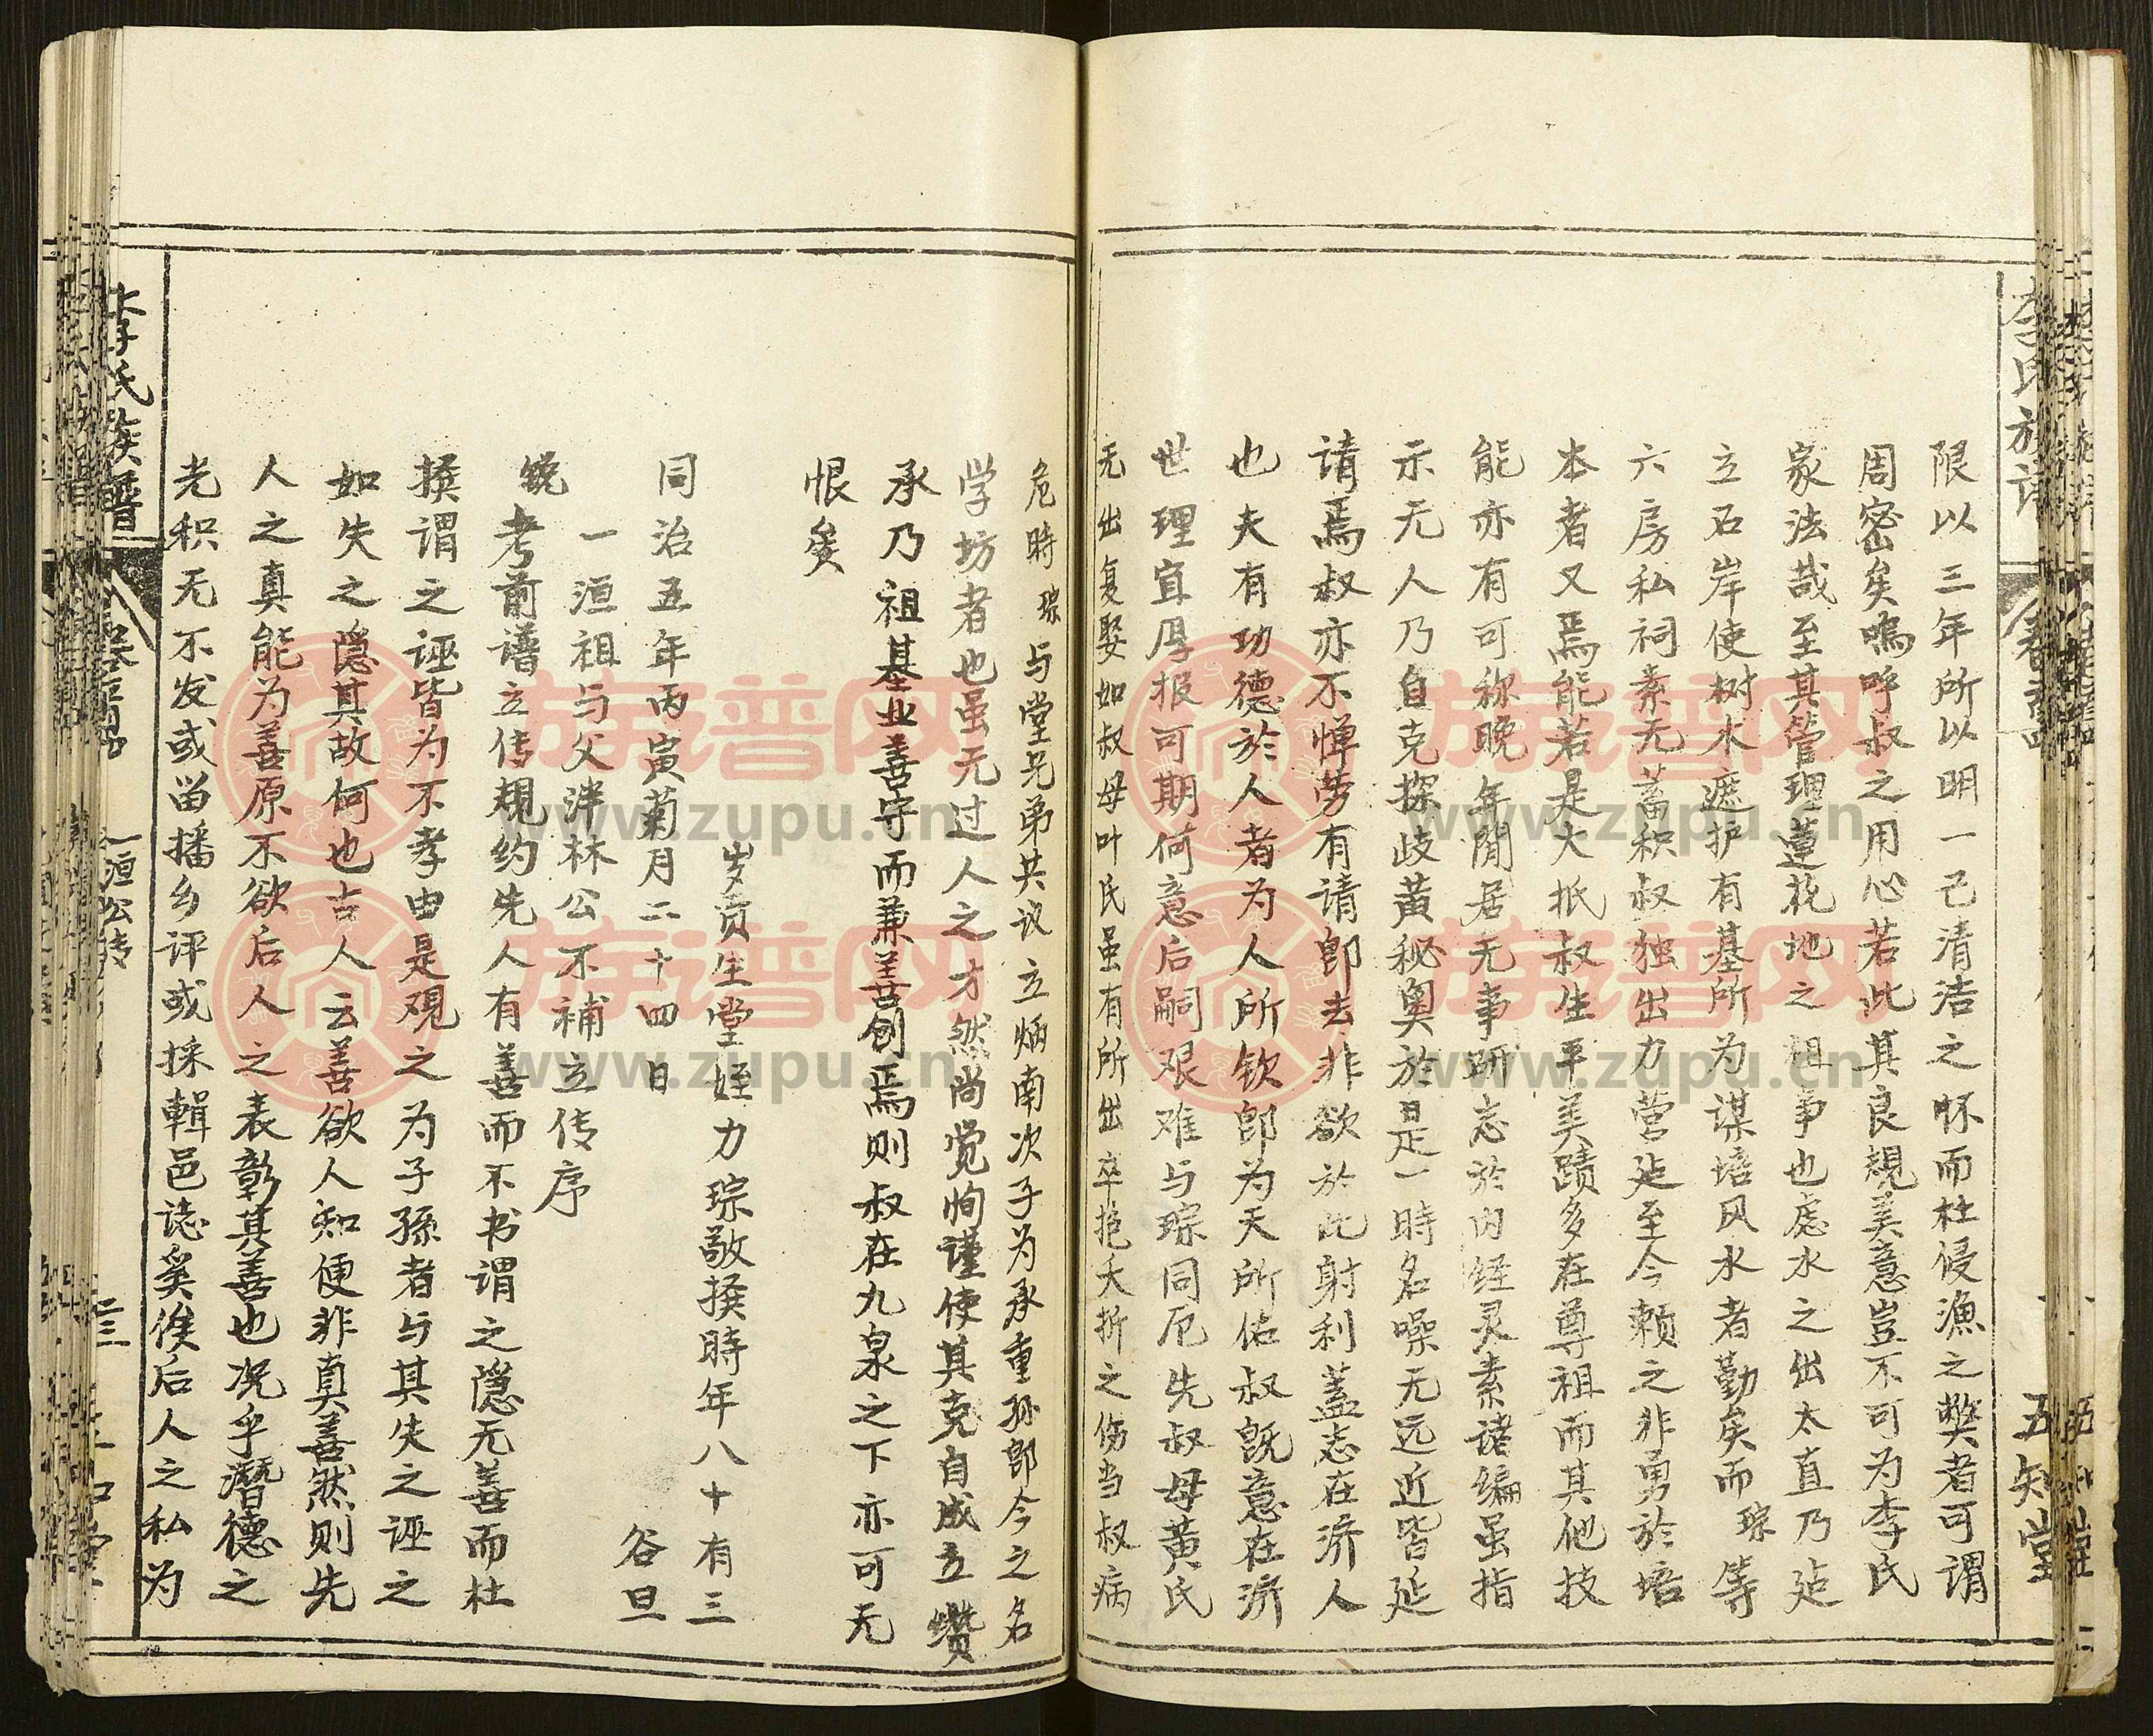 李氏族谱
五知堂
限以三年所以明一己清洁之怀而杜侵漁之獘者可谓
周密矣嗚呼叔之用心若此其良規美意豈不可为李氏
家法哉至其管理蓮花地之祖事也慮水之出太直乃込
立石岸使树木遮护有基所为谋培风水者勤矣而琮等
六房私祠素无蓄积叔独出力营込至今赖之非勇於培
本者又焉能若是大抵叔生平美蹟多在尊祖而其他技
能亦有可称晚年閒居无事研志於内经灵素诸编虽指
示无人乃自克探歧黄秘奥於是一時名噪无远近皆延
请焉叔亦不惮劳有请郎去非欲於此射利蓋志在济人
也夫有功德於人者为人所钦郎为天所佑叔既意在济
世理宜厚报可期何意后嗣艰难与琮同厄先叔母黄氏
无出复娶如叔母叶氏虽有所出卒抱夭折之伤当叔病
危時琮与堂兄弟共议立炳南次子为承重孙郎今之名
学坊者也虽无过人之才然尚觉恂谨使其克自成立缵
承乃祖基业善守而兼善创焉则叔在九泉之下亦可无
恨矣
岁贡生堂姪力琮敬撰時年八十有三
同治五年丙寅菊月二十四日
谷旦
一洹祖与父泮林公不補立传序
窃考前谱立传規约先人有善而不书谓之隐无善而杜
撰谓之誣皆为不孝由是观之为子孫者与其失之誣之
如失之隐其故何也古人云善欲人知便非真善然则先
人之真能为善原不欲后人之表彰其善也况乎潛德之
光积无不发或留播乡评或採輯邑誌奚俟后人之私为
李氏族譜
一洹公传